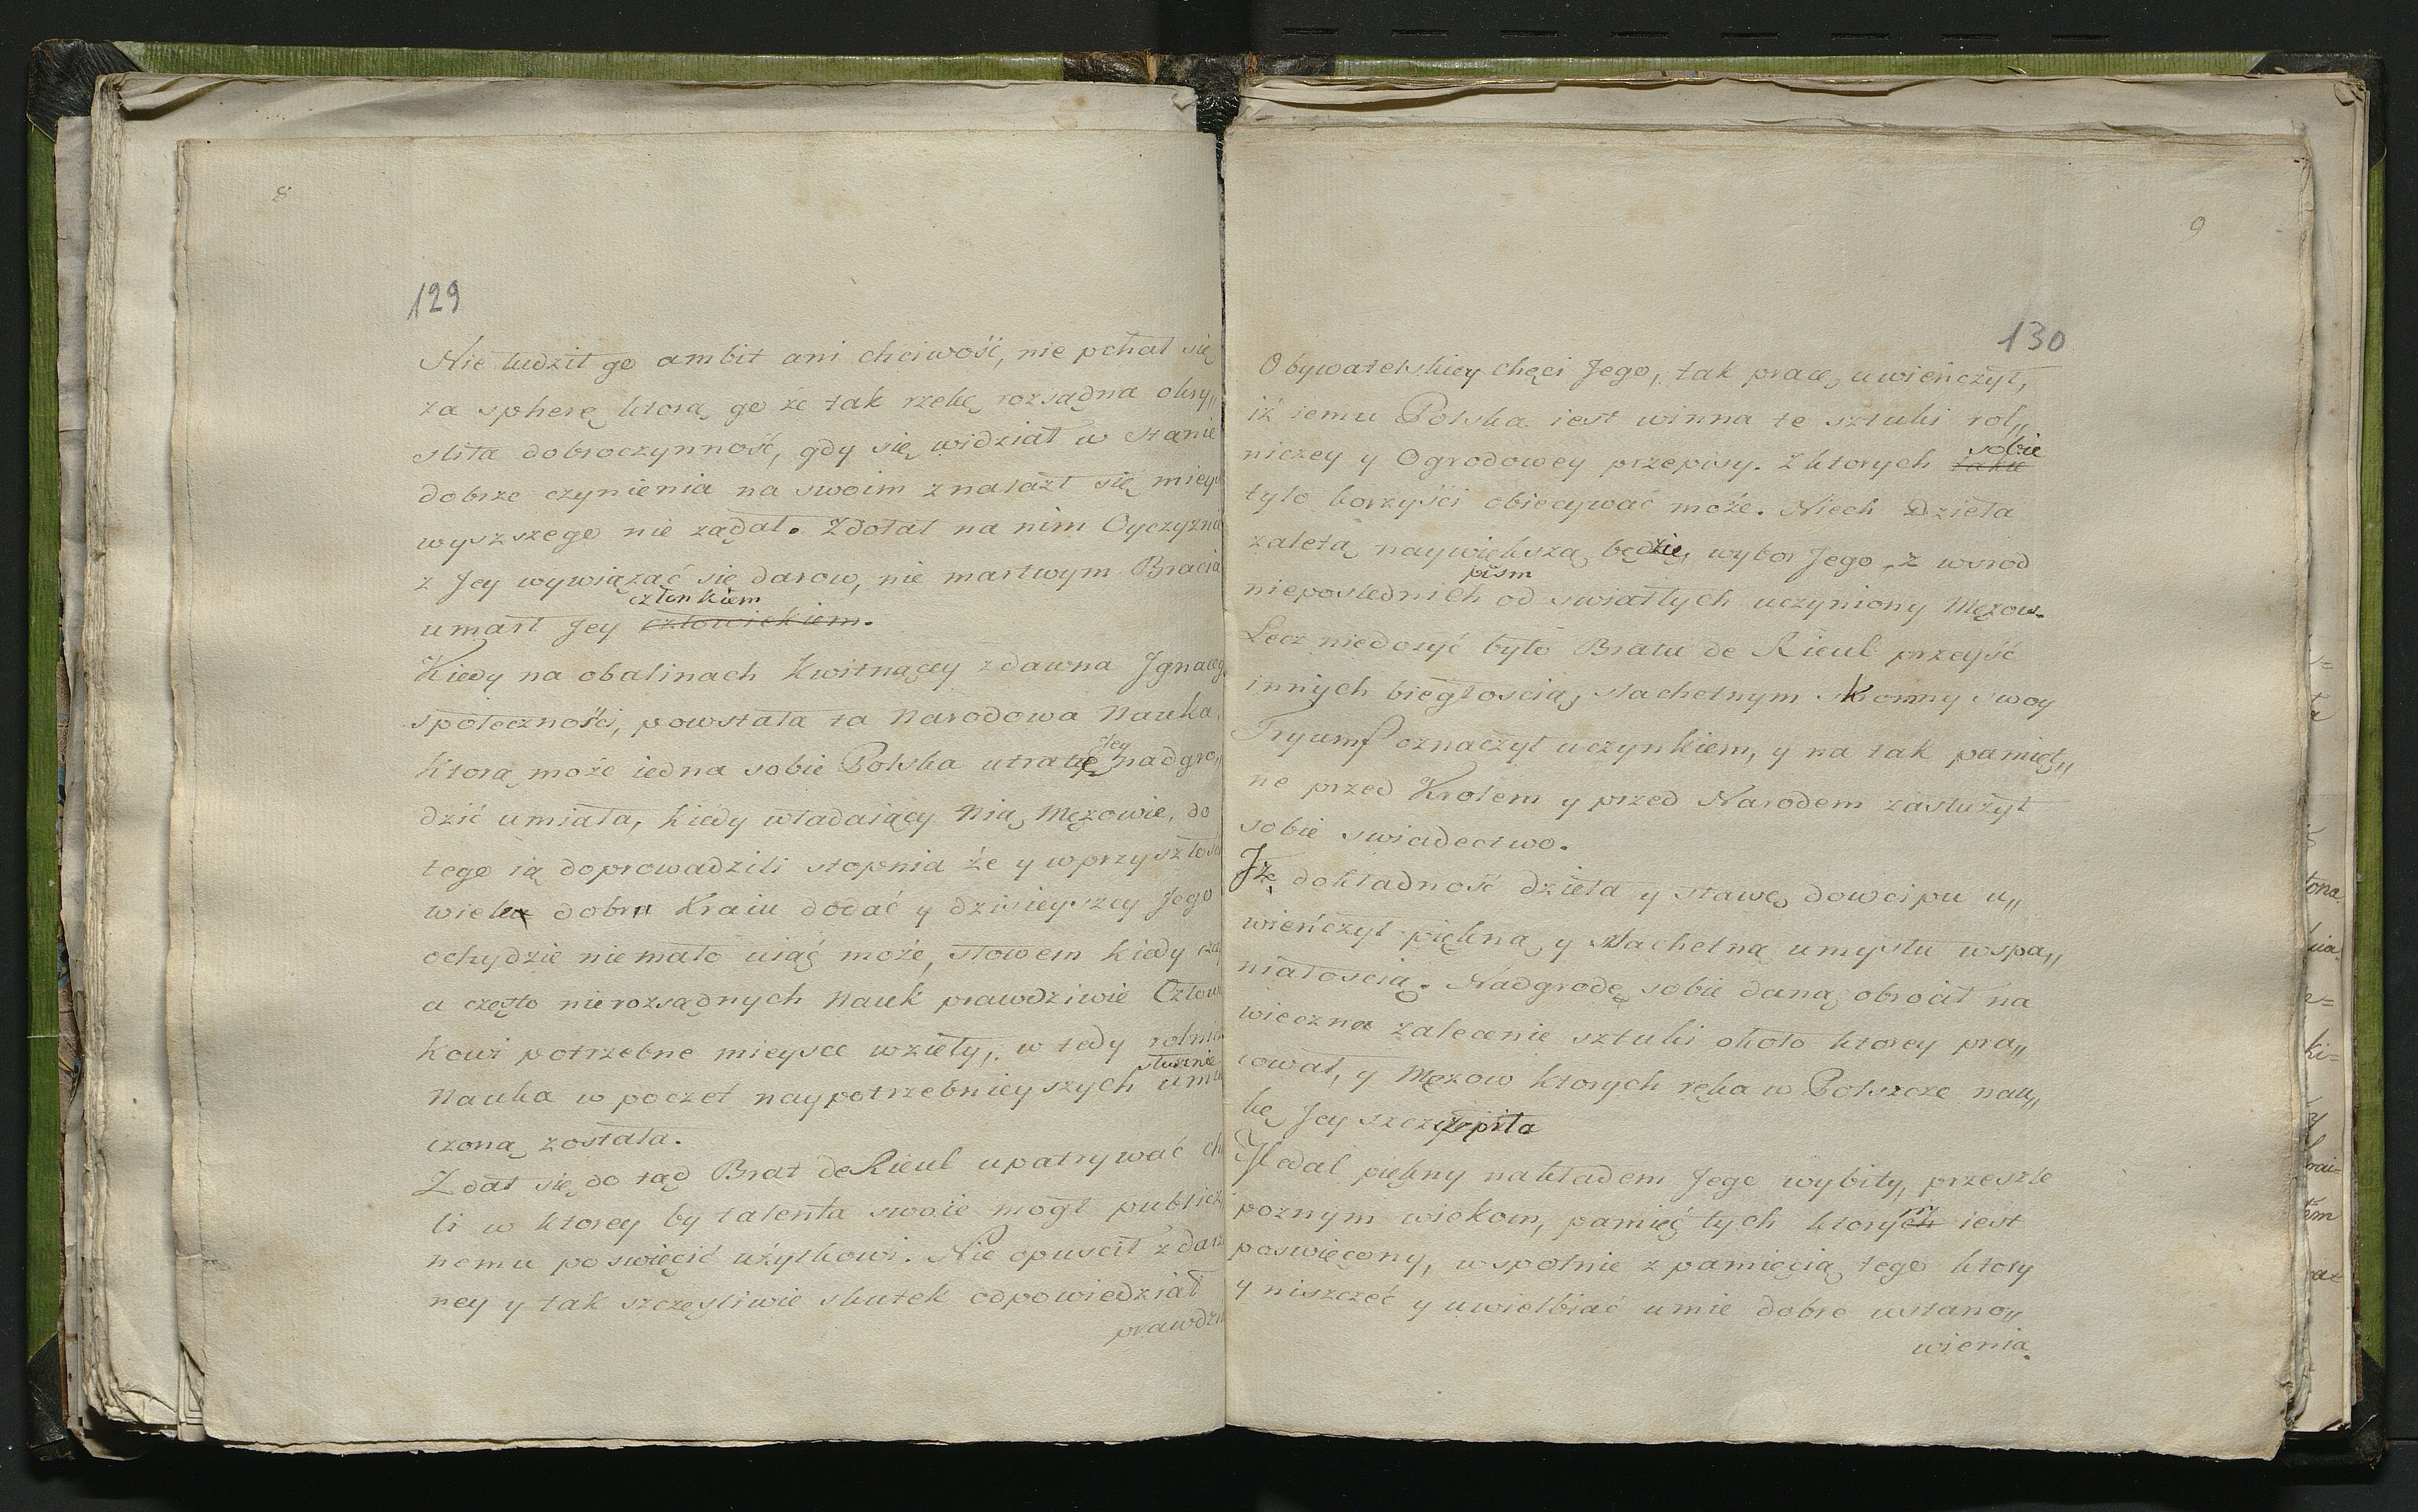 8
129
Nie łudził go ambit ani chciwość, nie pchał się
za spherę ktorą go że tak rzekę rozsądna okry„
sliła dobroczynność, gdy się widział w stanie
dobrze czynienia na swoim znalazł się mieys
wyszszego nie żądał. Zdołał na nim Oyczyznie
z Jey wywiązać się darow, nie martwym Bracia
członkiem
umarł Jey człowiekiem.
Kiedy na obalinach Kwitnącey zdawna Jgnaceg
społeczności, powstała ta Narodowa Nauka,
Jey
ktorą może iedna sobie Polska utratę nadgro„
dzić umiała, kiedy władaiący Nią Mężowie, do
tego ią doprowadzili stopnia że y w przyszłos
wiele dobra Kraiu dodać y dzisieyszey Jego
ochydzie niemało uiąć może, słowem kiedy
a często nierozsądnych Nauk prawdziwie Człowi
kowi potrzebne mieysce wzieły, w tedy rolnic
słusznie
Nauka w poczet naypotrzebnieyszych umie
czoną została.
Zdał się do tąd Brat de Rieul upatrywać ch
li w ktorey by talenta swoie mogł publicz
nemu poswięcić użytkowi. Nie opuscił zdarz
ney y tak szczęsliwie skutek odpowiedział
prawdzi
9
130
Obywatelskiey chęci Jego, tak pracę uwieńczył,
iż iemu Polska iest winna te sztuki rol„
sobie
niczey y Ogrodowey przepisy. Z ktorych takie
tylo korzyści obiecywać może. Niech Dzieła
zaletą naywiększą będzie, wybor Jego z wsrod
pism
nieposlednich od swiatłych uczyniony Mężow.
Lecz niedosyć było Bratu de Rieul przeyść
innych biegłoscią, slachetnym skromny swoy
Tryumf oznaczył uczynkiem, y na tak pamięt„
ne przed Krolem y przed Narodem zasłużył
sobie swiadectwo.
Jżę dokładność dzieła y sławę dowcipu u„
wieńczył piękną y slachetną umysłu wspa„
niałoscią. Nadgrodę sobie daną obrocił na
wieczna zalecenie sztuki około ktorey pra„
cował, y Mężow ktorych ręka w Polszcze nau„
kę Jey szczepiła
Medal piękny nakładem Jego wybity, przeszle
poznym wiekom, pamięć tych ktorych iest
poswięcony, wspolnie z pamięcią tego ktory
y niszczeć y uwielbiać umie dobre ustano„
wienia.